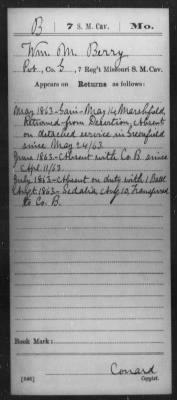 B 7 S. M. Cav. Mo.
Wm. M. Berry
Pvt., Co. G, 7 Reg't Missouri S. M. Cav.
Appears on Returns as follows:
May 1863-Gain-May 14, Marshfield,
Returned from Desertion, Absent
on detached service in Greenfield
since May 24/63.
June 1863-Absent with Co. B since
Apl. 11/63.
July 1863-Absent on duty with 1 Batt.
Aug't 1863-Sedalia, Aug 10, Transferred
to Co. B.
Book Mark:
Conrard
(546) Copyist.